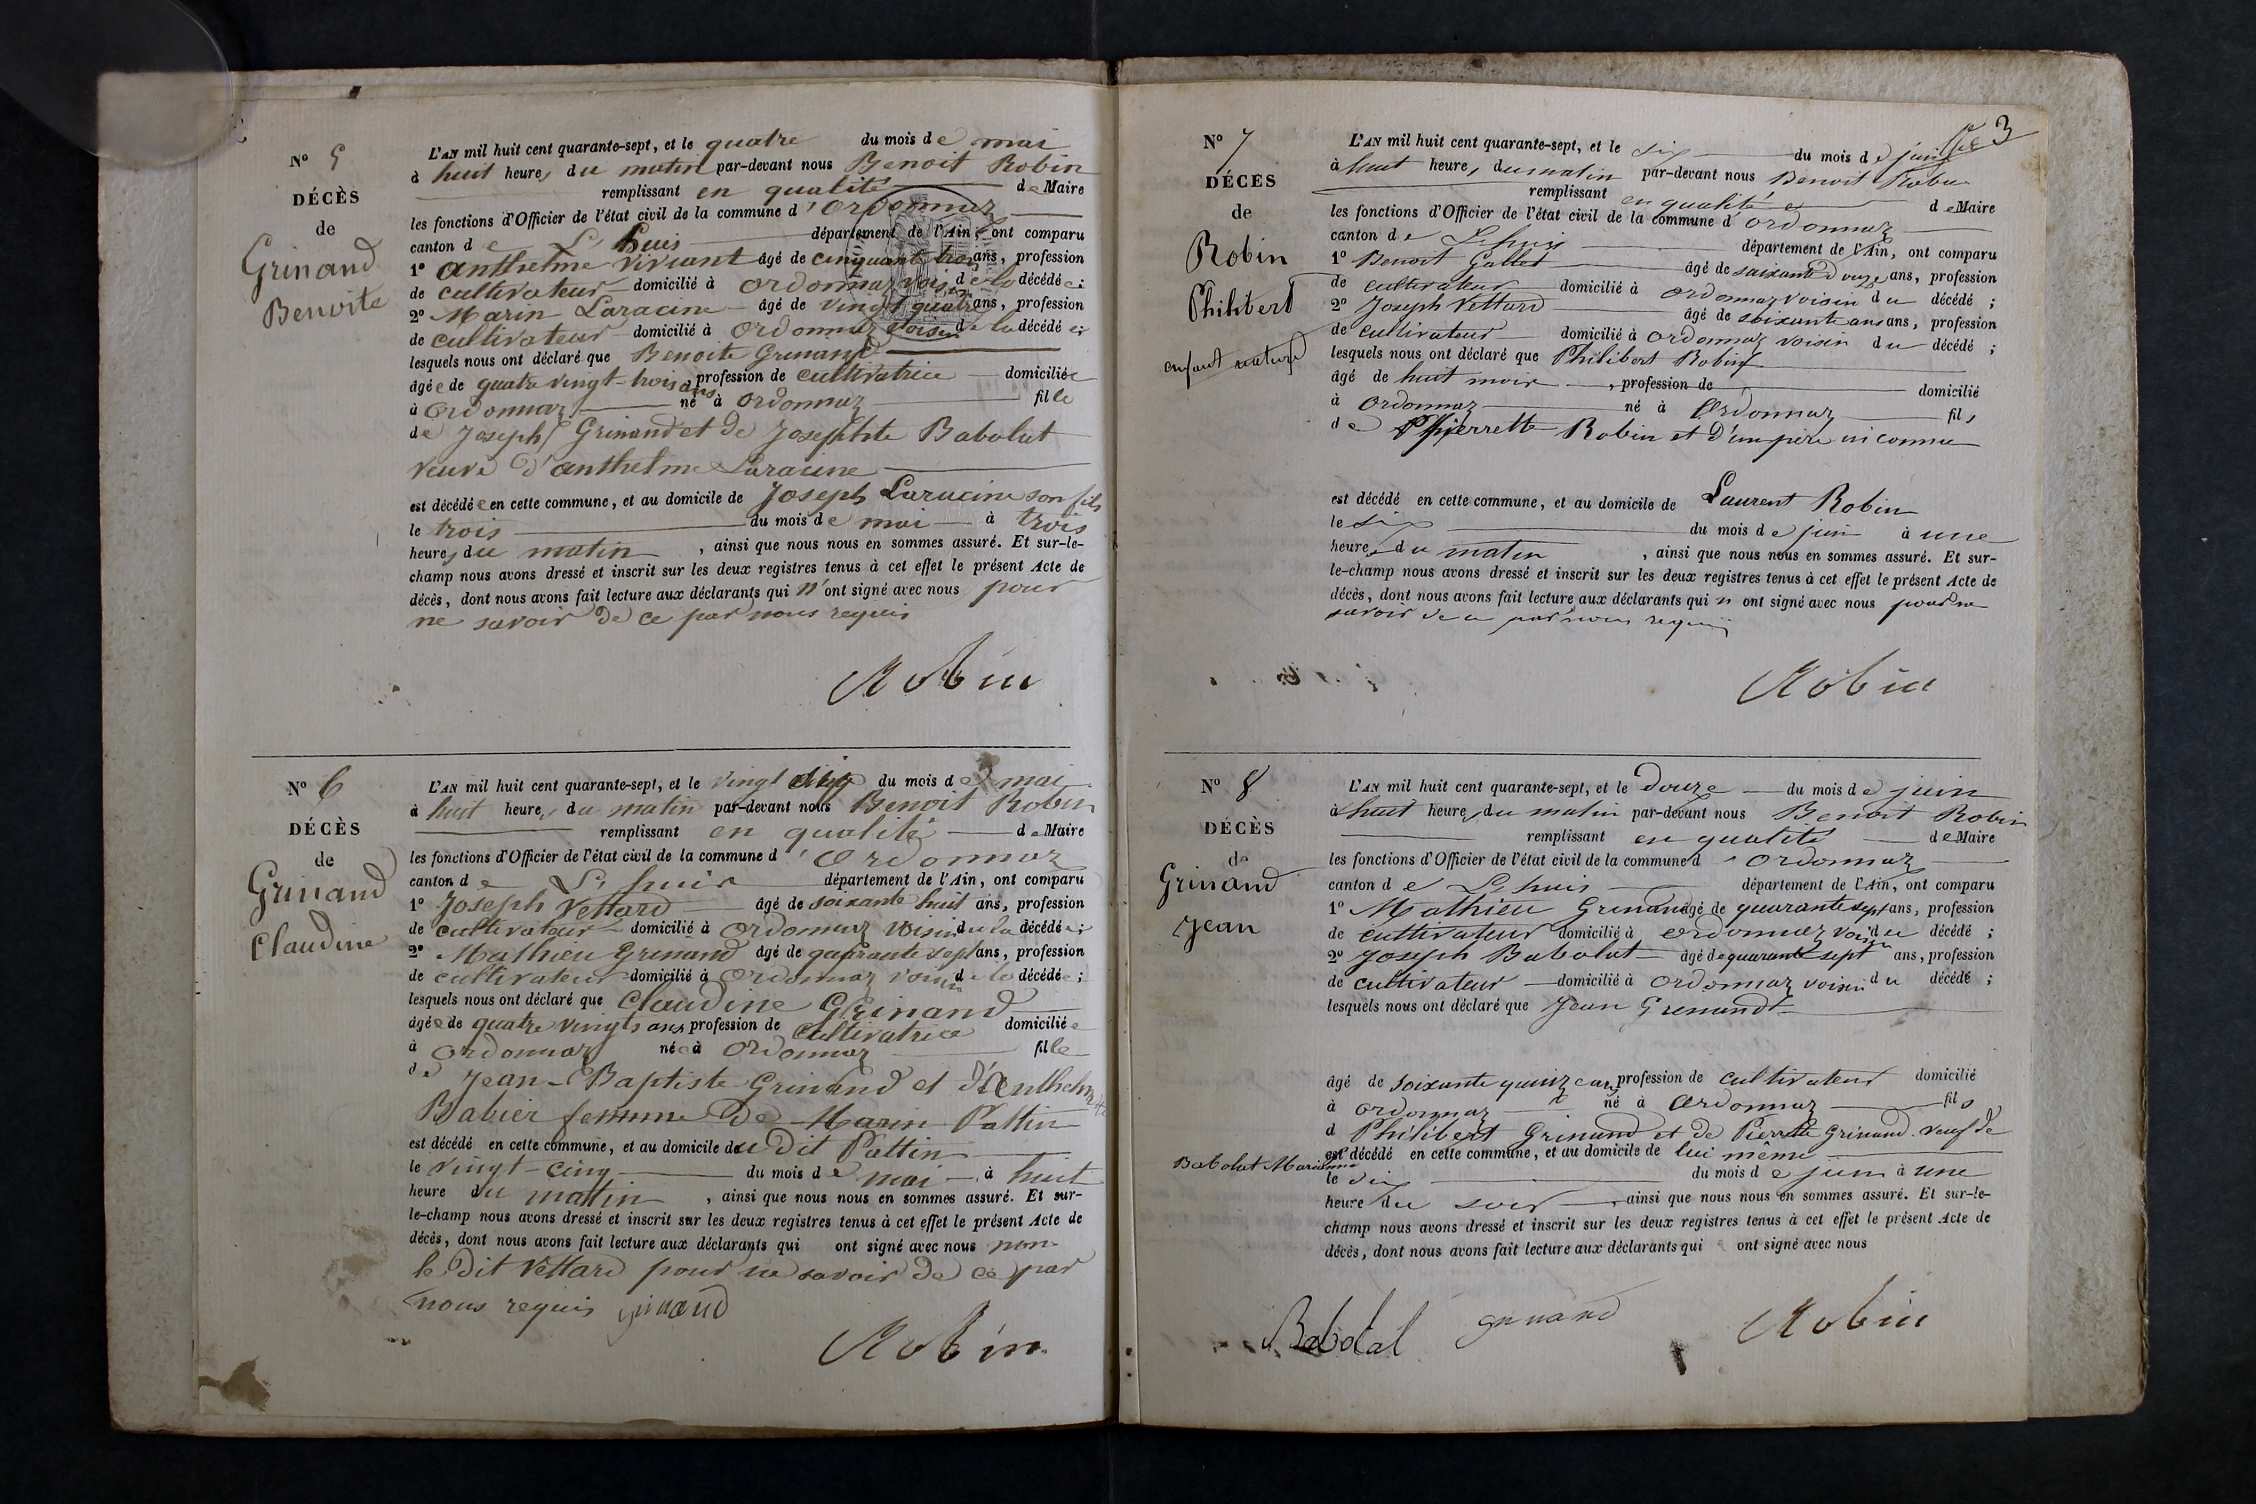 N° 5
DÉCÈS
de
Grinand
Benoite
L'AN mil huit cent quarante-sept, et le quatre du mois de mai
à huit heures du matin par-devant nous Benoit Robin
remplissant en qualité de Maire
les fonctions d'Officier de l'état civil de la commune d'Ordonnaz
canton de L'huis département de l'Ain, ont comparu
1° Anthelme Viviant âgé de cinquante trois ans, profession
de cultivateur domicilié à Ordonnaz voisin de la décédée;
2° Marin Laracine âgé de vingt quatre ans, profession
de cultivateur domicilié à Ordonnaz voisin de la décédée;
lesquels nous ont déclaré que Benoite Grinand
âgée de quatre vingt-trois ans profession de cultivatrice domiciliée
à Ordonnaz né à Ordonnaz fille
de Joseph Grinand et de Josephte Babolat
veuve d'anthelme Laracine
est décédée en cette commune, et au domicile de Joseph Laracine son fils
le trois du mois de mai à trois
heures du matin, ainsi que nous nous en sommes assuré. Et sur-le-
champ nous avons dressé et inscrit sur les deux registres tenus à cet effet le présent Acte de
décès, dont nous avons fait lecture aux déclarants qui n'ont signé avec nous pour
ne savoir de ce par nous requis
Robin
N° 6
DÉCÈS
de
Grinand
Claudine
L'AN mil huit cent quarante-sept, et le vingt du mois de mai
à huit heures du matin par-devant nous Benoit Robin
remplissant en qualité de Maire
les fonctions d'Officier de l'état civil de la commune d'Ordonnaz
canton de L'huis département de l'Ain, ont comparu
1° Joseph Vettard âgé de soixante huit ans, profession
de cultivateur domicilié à Ordonnaz voisin de la décédée;
2° Mathieu Grinand âgé de quarante sept ans, profession
de cultivateur domicilié à Ordonnaz voisin de la décédée;
lesquels nous ont déclaré que Claudine Grinand
âgée de quatre vingts ans profession de cultivatrice domiciliée
à Ordonnaz née à Ordonnaz fille
de Jean-Baptiste Grinand et d'Anthelmette
Babier femme de Marin Pattin
est décédé en cette commune, et au domicile du dit Pattin
le vingt-cinq du mois de mai à huit
heure du matin, ainsi que nous nous en sommes assuré. Et sur-
le-champ nous avons dressé et inscrit sur les deux registres tenus à cet effet le présent Acte de
décès, dont nous avons fait lecture aux déclarants qui ont signé avec nous non
le dit Vettard pour ne savoir de ce par
nous requis grinand
Robin
3
N° 7
DÉCÈS
de
Robin
Philibert
enfant naturel
L'AN mil huit cent quarante-sept, et le six du mois de juin
à huit heures du matin par-devant nous Benoit Robin
remplissant en qualité de Maire
les fonctions d'Officier de l'état civil de la commune d'Ordonnaz
canton de L'huis département de l'Ain, ont comparu
1° Benoit Gallet âgé de soixante douze ans, profession
de cultivateur domicilié à Ordonnaz voisin du décédé;
2° Joseph Vettard âgé de soixante ans ans, profession
de cultivateur domicilié à Ordonnaz voisin du décédé;
lesquels nous ont déclaré que Philibert Robin
âgé de huit mois, profession de domicilié
à Ordonnaz né à Ordonnaz fils
de Pierrette Robin et d'un père inconnu
est décédé en cette commune, et au domicile de Laurent Robin
le six du mois de juin à une
heure du matin, ainsi que nous nous en sommes assuré. Et sur-
le-champ nous avons dressé et inscrit sur les deux registres tenus à cet effet le présent Acte de
décès, dont nous avons fait lecture aux déclarants qui n ont signé avec nous pour ne
savoir de ce par nous requis
Robin
N° 8
DÉCÈS
de
Grinand
Jean
L'AN mil huit cent quarante-sept, et le douze du mois de juin
à huit heures du matin par-devant nous Benoit Robin
remplissant en qualité de Maire
les fonctions d'Officier de l'état civil de la commune d'Ordonnaz
canton de L'huis département de l'Ain, ont comparu
1° Mathieu Grinand âgé de quarante sept ans, profession
de cultivateur domicilié à Ordonnaz voisin du décédé;
2° Joseph Babolat âgé de quarante sept ans, profession
de cultivateur domicilié à Ordonnaz voisin du décédé;
lesquels nous ont déclaré que Jean Grinand
âgé de soixante quinze ans profession de cultivateur domicilié
à Ordonnaz né à Ordonnaz fils
d Philibert Grinand et de Pierrette Grinand veuf de
Babolat Marianne
est décédé en cette commune, et au domicile de lui même
le du mois de juin à une
heure du soir, ainsi que nous nous en sommes assuré. Et sur-le-
champ nous avons dressé et inscrit sur les deux registres tenus à cet effet le présent Acte de
décès, dont nous avons fait lecture aux déclarants qui ont signé avec nous
Babolat grinand Robin